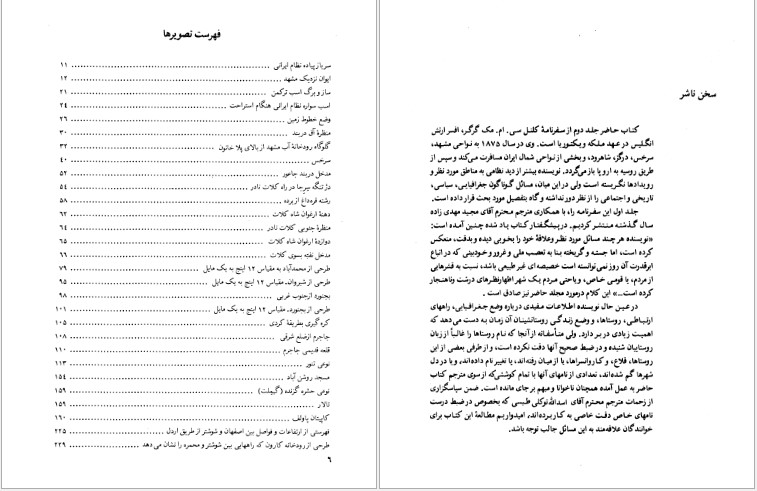 سخن ناشر
کتاب حاضر جلد دوم از سفرنامهٔ کلنل سی. ام. مک گرگر، افسر ارتش
انگلیس در عهد ملکه ویکتوریا است. وی در سال ۱۸۷۵ به نواحی مشهد،
سرخس، درگز، شاهرود، و بخشی از نواحی شمال ایران مسافرت می‌کند و سپس از
طریق روسیه به اروپا باز می‌گردد. نویسنده بیشتر از دید نظامی به مناطق مورد نظر و
رویدادها نگریسته است ولی در این میان، مسائل گوناگون جغرافیایی، سیاسی،
تاریخی و اجتماعی را از نظر دور نداشته و گاه بتفصیل مورد بحث قرار داده است.
جلد اول این سفرنامه را، با همکاری مترجم محترم آقای مجید مهدی زاده
سال گذشته منتشر کردیم. در پیشگفتار کتاب یاد شده چنین آمده است:
«نویسنده هر چند مسائل مورد نظر و علاقهٔ خود را بخوبی دیده و بدقت، منعکس
کرده است، اما جسته و گریخته بنا به تعصب ملی و غرور و خودبینی که در اتباع
ابرقدرت آن روز نمی‌توانسته است خصیصه ای غیر طبیعی باشد، نسبت به قشرهایی
از مردم، یا قومی خاص، و یا حتی مردم یک شهر اظهارنظرهای درشت و ناهنجار
کرده است...» این کلام در مورد مجلد حاضر نیز صادق است.
در عین حال نویسنده اطلاعات مفیدی درباره وضع جغرافیایی، راههای
ارتباطی، روستاها، و وضع زندگی روستانشینان آن زمان به دست می‌دهد که
اهمیت زیادی در بر دارد. ولی متأسفانه از آنجا که نام روستاها را غالباً از زبان
روستاییان شنیده و در ضبط صحیح آنها دقت نکرده است، و از طرفی بعضی از این
روستاها، قلاع، و کاروانسراها، یا از میان رفته‌اند، یا تغییر نام داده‌اند، و یا در دل
شهرها گم شده‌اند، تعدادی از نامهای آنها با تمام کوششی که از سوی مترجم کتاب
حاضر به عمل آمده همچنان ناخوانا و مبهم بر جای مانده است. ضمن سپاسگزاری
از زحمات مترجم محترم آقای اسدالله توکلی طبسی که بخصوص در ضبط درست
نامهای خاص دقت خاصی به کار برده‌اند، امیدواریم مطالعهٔ این کتاب برای
خوانندگان علاقه‌مند به این مسائل جالب توجه باشد.
فهرست تصویرها
سرباز پیاده نظام ایرانی ۱۱
ایوان نزدیک مشهد ۱۲
ساز و برگ اسب ترکمن ۲۱
اسب سواره نظام ایرانی هنگام استراحت ۲۴
وضع خطوط زمین ۲۶
منظرهٔ آق دربند ۳۰
گلوگاه رودخانهٔ آب مشهد از بالای پلا خاتون ۳۲
سرخس ۴۰
مدخل دربند چاهور ۵۲
دژ تنگه بیرجا در راه کلات نادر ۵۴
رشته قره‌داغ از برده ۵۸
دهنهٔ ارغوان شاه کلات ۶۲
منظرهٔ جنوبی کلات نادر ۶۴
دوازدهٔ ارغوان شاه کلات ۶۵
مدخل نفته بسوی کلات ۶۶
طرحی از محمدآباد به مقیاس ۱۲ اینچ به یک مایل ۷۹
طرحی از شیروان. مقیاس ۱۲ اینچ به یک مایل ۹۵
بجنورد از جنوب غربی ۹۸
طرحی از بجنورد. مقیاس ۱۲ اینچ به یک مایل ۱۰۱
کره گیری بطریقهٔ کردی ۱۰۵
جاجرم از ضلع شرقی ۱۰۸
قلعه قدیمی جاجرم ۱۱۰
نوعی تنور ۱۱۳
مسجد روشن آباد ۱۵۴
نوعی حشره گزنده (گیملت) ۱۵۹
تالار ۱۵۹
کاپیتان پاولف ۱۶۰
فهرستی از ارتفاعات و فواصل بین اصفهان و شوشتر از طریق اردل ۲۲۵
طرحی از رودخانه کارون که راههایی بین شوشتر و محمره را نشان می دهد ۲۳۹
۶